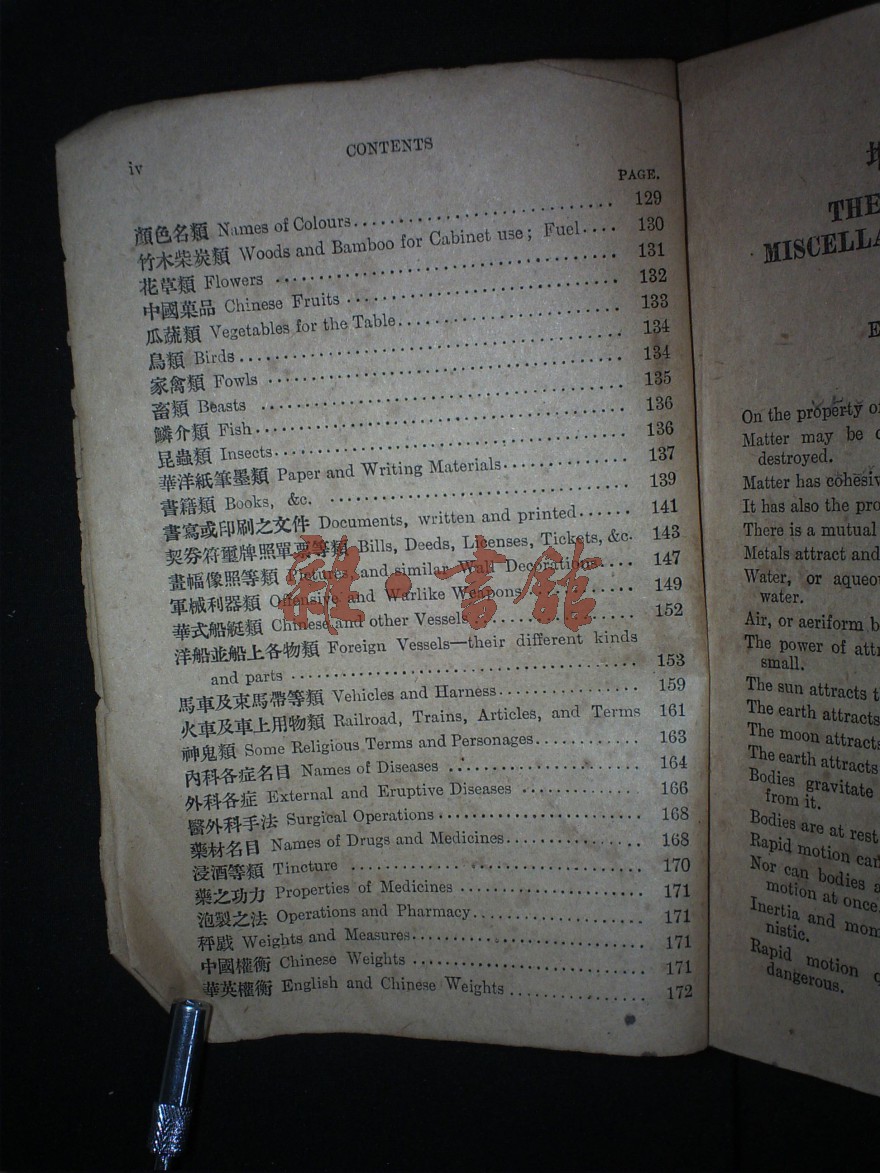 iv
CONTENTS
PAGE.
顏色名類 Names of Colours 129
竹木柴炭類 Woods and Bamboo for Cabinet use; Fuel 130
花草類 Flowers 131
中國菓品 Chinese Fruits 132
瓜蔬類 Vegetables for the Table 133
鳥類 Birds 134
家禽類 Fowls 134
畜類 Beasts 135
鱗介類 Fish 136
昆蟲類 Insects 136
華洋紙筆墨類 Paper and Writing Materials 137
書籍類 Books, &c. 139
書寫或印刷之文件 Documents, written and printed 141
契券符璽牌照單票等類 Bills, Deeds, Licenses, Tickets, &c. 143
畫幅像照等類 Pictures, and similar Wall Decorations 147
軍械利器類 Offensive and Warlike Weapons 149
華式船艇類 Chinese and other Vessels 152
洋船並船上各物類 Foreign Vessels—their different kinds
and parts 153
馬車及束馬帶等類 Vehicles and Harness 159
火車及車上用物類 Railroad, Trains, Articles, and Terms 161
神鬼類 Some Religious Terms and Personages 163
內科各症名目 Names of Diseases 164
外科各症 External and Eruptive Diseases 166
醫外科手法 Surgical Operations 168
藥材名目 Names of Drugs and Medicines 168
浸酒等類 Tincture 170
藥之功力 Properties of Medicines 171
泡製之法 Operations and Pharmacy 171
秤戥 Weights and Measures 171
中國權衡 Chinese Weights 171
華英權衡 English and Chinese Weights 172
書舘
THE
MISCELLA
E
On the property o
Matter may be
destroyed.
Matter has cohesiv
It has also the pro
There is a mutual
Metals attract and
Water, or aqueou
water.
Air, or aeriform b
The power of attr
small.
The sun attracts t
The earth attracts
The moon attracts
The earth attracts
Bodies gravitate
from it.
Bodies are at rest
Rapid motion can
Nor can bodies a
motion at once.
Inertia and mom
nistic.
Rapid motion
dangerous.